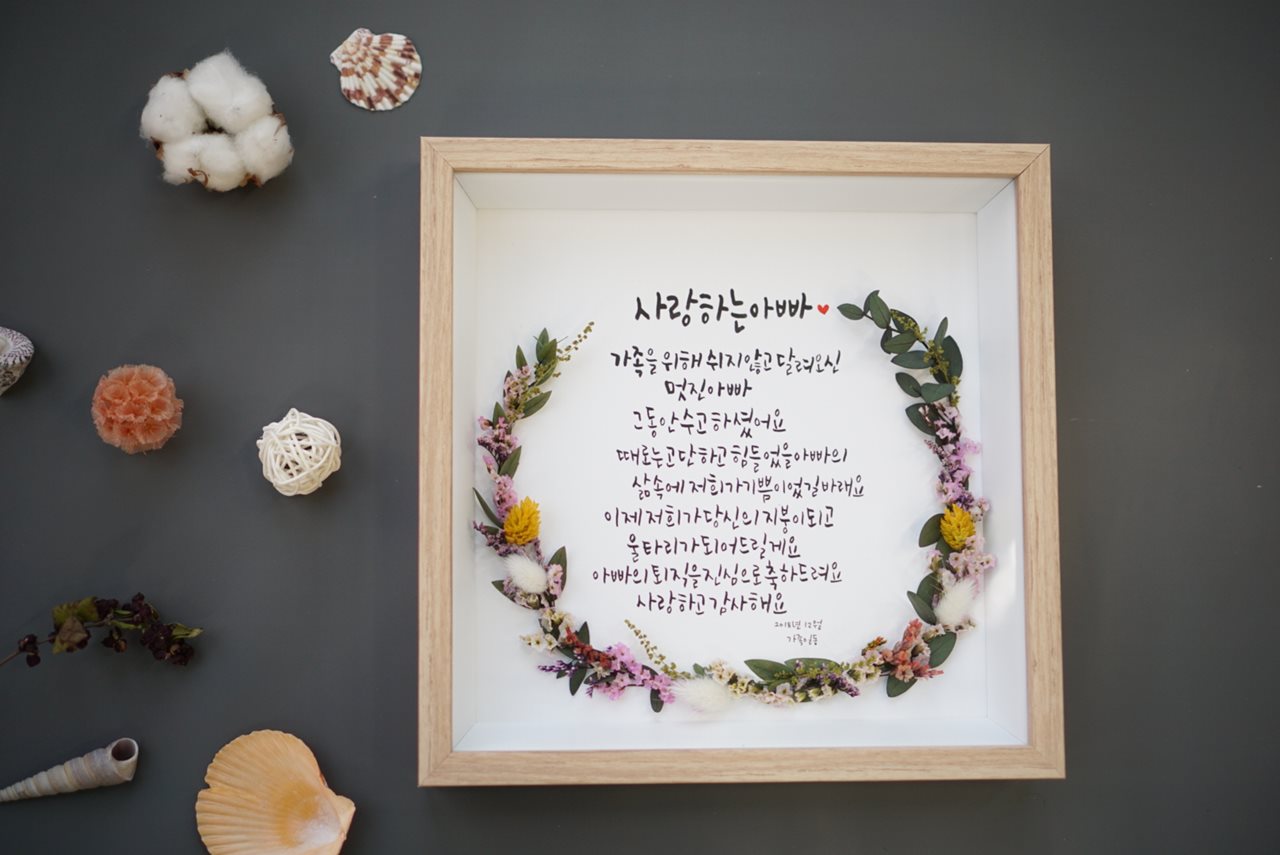 사랑하는 아빠
가족을 위해 쉬지않고 달려오신
멋진 아빠
그동안 수고하셨어요
때로는 고단하고 힘들었을 아빠의
삶속에 저희가 기쁨이었길 바래요
이제 저희가 당신의 지붕이 되고
울타리가 되어드릴게요
아빠의 퇴직을 진심으로 축하드려요
사랑하고 감사해요
2018년 12월
가족일동